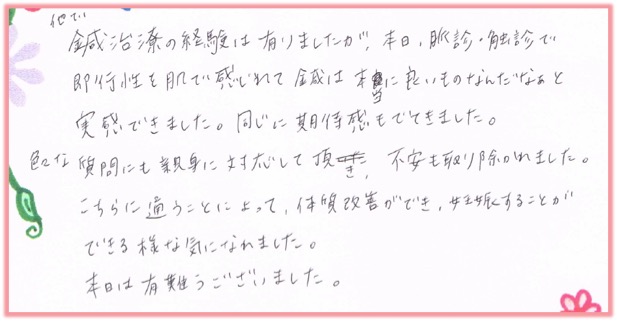 他で
鍼治療の経験は有りましたが、本日、脈診・触診で
即行性を肌で感じれて鍼は本当に良いものなんだなぁと
実感できました。同じに期待感もでてきました。
色々な質問にも親身に対応して頂き、不安も取り除かれました。
こちらに通うことによって、体質改善ができ、妊娠することが
できる様な気になれました。
本日は有難うございました。